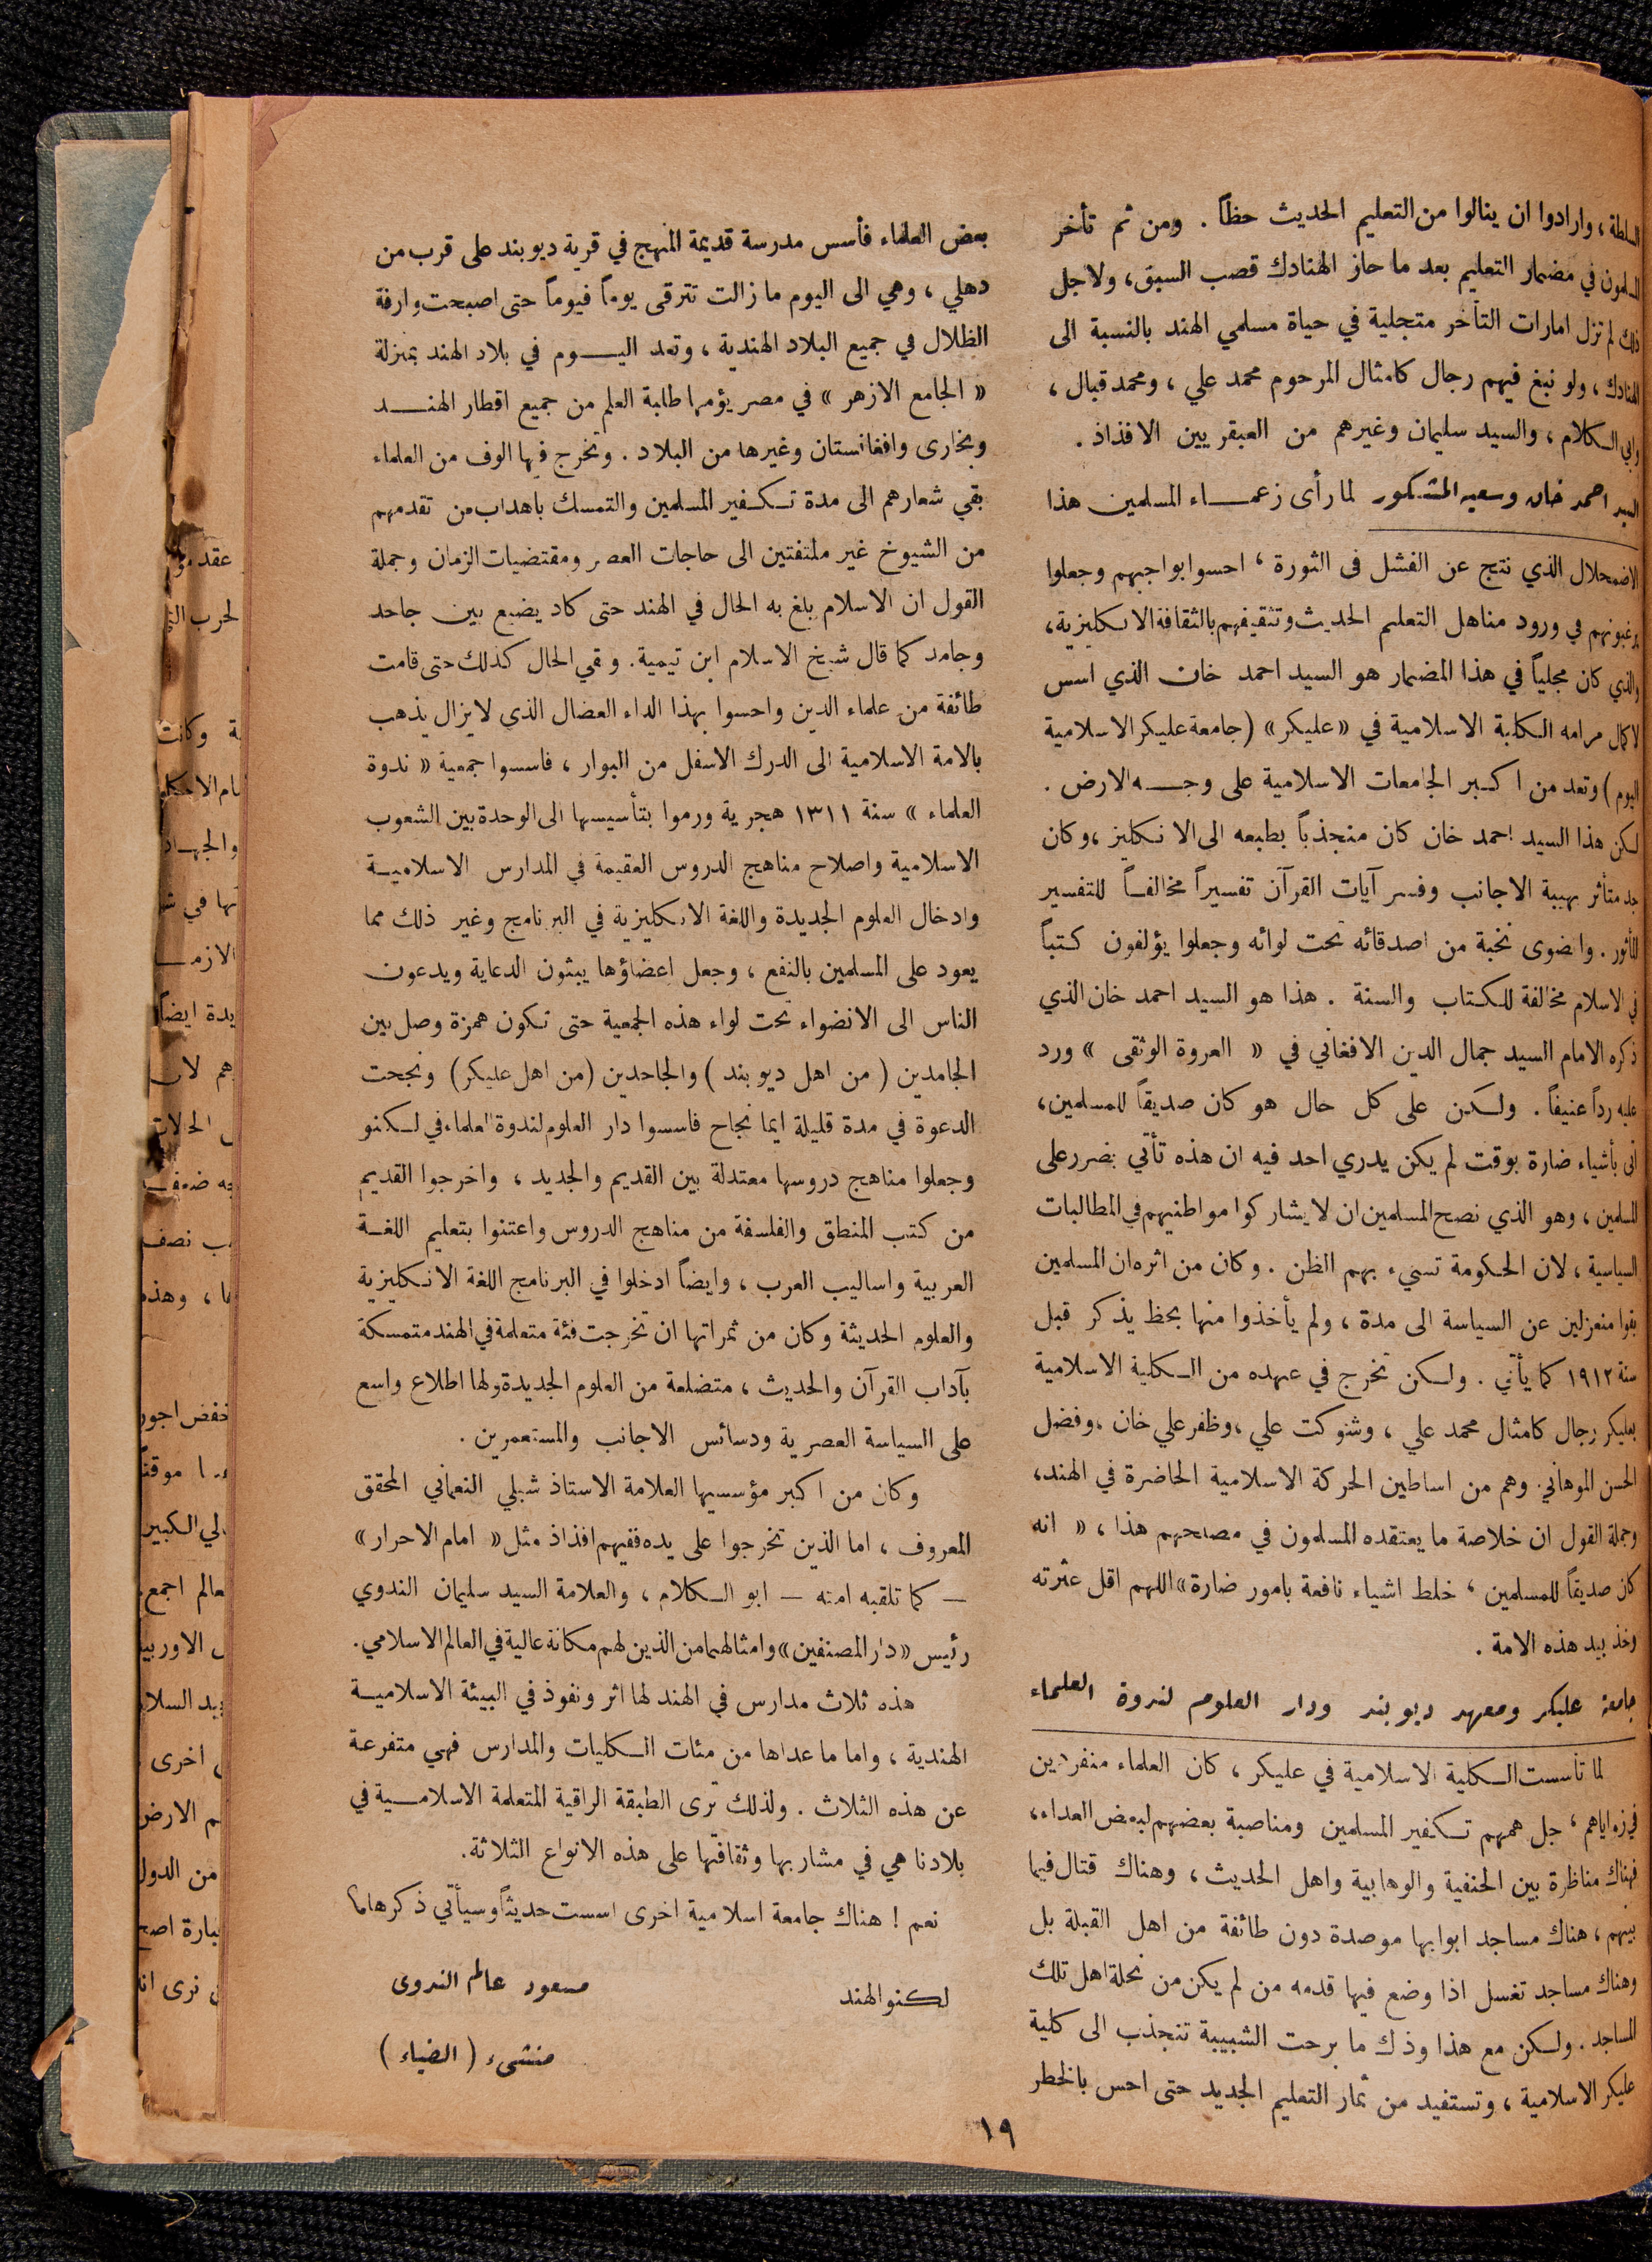 السلطة، وارادوا ان ينالوا من التعليم الحديث حظاً . ومن ثم تأخر
المسلمون في مضمار التعليم بعد ما حاز الهنادك قصب السبق، ولاجل
ذلك لم تزل امارات التأخر متجلية في حياة مسلمي الهند بالنسبة الى
الهنادك، ولو نبغ فيهم رجال كامثال المرحوم محمد علي ، ومحمد قبال ،
وابي الكلام ، والسيد سليمان وغيرهم من العبقريين الافذاذ .
السيد احمد خان وسعيه المشكور لما رأى زعماء المسلمين هذا
الاضمحلال الذي نتج عن الفشل في الثورة ، احسوا بواجبهم وجعلوا
يرغبونهم في ورود مناهل التعليم الحديث وتثقيفهم بالثقافة الانكليزية،
والذي كان مجلياً في هذا المضمار هو السيد احمد خان الذي اسس
لاكمال مرامه الكلية الاسلامية في «عليكر» (جامعة عليكر الاسلامية
اليوم) وتعد من اكبر الجامعات الاسلامية على وجه الارض .
لكن هذا السيد احمد خان كان منجذباً بطبعه الى الانكليز ، وكان
جد متأثر بهيبة الاجانب وفسر آيات القرآن تفسيراً مخالفاً للتفسير
المأثور . وانضوى نخبة من اصدقائه تحت لوائه وجعلوا يؤلفون كتباً
في الاسلام مخالفة للكتاب والسنة . هذا هو السيد احمد خان الذي
ذكره الامام السيد جمال الدين الافغاني في « العروة الوثقى » ورد
عليه رداً عنيفاً . ولكن على كل حال هو كان صديقاً للمسلمين،
اتى بأشياء ضارة بوقت لم يكن يدري احد فيه ان هذه تأتي بضرر على
المسلمين ، وهو الذي نصح المسلمين ان لا يشاركوا مواطنيهم في المطالبات
السياسية ، لان الحكومة تسيء بهم الظن . وكان من اثره ان المسلمين
بقوا منعزلين عن السياسة الى مدة ، ولم يأخذوا منها بحظ يذكر قبل
سنة ١٩١٢ كما يأتي . ولكن تخرج في عهده من الكلية الاسلامية
بعليكر رجال كامثال محمد علي ، وشوكت علي ، وظفر علي خان ، وفضل
الحسن الموهاني. وهم من اساطين الحركة الاسلامية الحاضرة في الهند،
وجملة القول ان خلاصة ما يعتقده المسلمون في مصلحهم هذا ، « انه
كان صديقاً للمسلمين ، خلط اشياء نافعة بامور ضارة» اللهم اقل عثرته
وخذ بيد هذه الامة .
جامعة عليكر ومعهد ديوبند ودار العلوم لندوة العلماء
لما تأسست الكلية الاسلامية في عليكر ، كان العلماء منفردين
في زواياهم ، جل همهم تكفير المسلمين ومناصبة بعضهم لبعض العداء،
فهناك مناظرة بين الحنفية والوهابية واهل الحديث ، وهناك قتال فيما
بينهم ، هناك مساجد ابوابها موصدة دون طائفة من اهل القبلة بل
وهناك مساجد تغسل اذا وضع فيها قدمه من لم يكن من نحلة اهل تلك
المساجد . ولكن مع هذا وذاك ما برحت الشبيبة تنجذب الى كلية
عليكر الاسلامية ، وتستفيد من ثمار التعليم الجديد حتى احس بالخطر
بعض العلماء فأسس مدرسة قديمة المنهج في قرية ديوبند على قرب من
دهلي ، وهي الى اليوم ما زالت تترقى يوماً فيوماً حتى اصبحت وارفة
الظلال في جميع البلاد الهندية ، وتعد اليوم في بلاد الهند بمنزلة
« الجامع الازهر » في مصر يؤمها طلبة العلم من جميع اقطار الهند
وبخارى وافغانستان وغيرها من البلاد . وتخرج فيها الوف من العلماء
بقي شعارهم الى مدة تكفير المسلمين والتمسك باهداب من تقدمهم
من الشيوخ غير ملتفتين الى حاجات العصر ومقتضيات الزمان وجملة
القول ان الاسلام بلغ به الحال في الهند حتى كاد يضيع بين جاحد
وجامد كما قال شيخ الاسلام ابن تيمية. وبقي الحال كذلك حتى قامت
طائفة من علماء الدين واحسوا بهذا الداء العضال الذي لا يزال يذهب
بالامة الاسلامية الى الدرك الاسفل من البوار ، فاسسوا جمعية « ندوة
العلماء » سنة ١٣١١ هجرية ورموا بتأسيسها الى الوحدة بين الشعوب
الاسلامية واصلاح مناهج الدروس العقيمة في المدارس الاسلامية
وادخال العلوم الجديدة واللغة الانكليزية في البرنامج وغير ذلك مما
يعود على المسلمين بالنفع ، وجعل اعضاؤها يبثون الدعاية ويدعون
الناس الى الانضواء تحت لواء هذه الجمعية حتى تكون همزة وصل بين
الجامدين ( من اهل ديوبند ) والجاحدين (من اهل عليكر) ونجحت
الدعوة في مدة قليلة ايما نجاح فاسسوا دار العلوم لندوة العلماء في لكنو
وجعلوا مناهج دروسها معتدلة بين القديم والجديد ، واخرجوا القديم
من كتب المنطق والفلسفة من مناهج الدروس واعتنوا بتعليم اللغة
العربية واساليب العرب ، وايضاً ادخلوا في البرنامج اللغة الانكليزية
والعلوم الحديثة وكان من ثمراتها ان تخرجت فئة متعلمة في الهند متمسكة
بآداب القرآن والحديث ، متضلعة من العلوم الجديدة ولها اطلاع واسع
على السياسة العصرية ودسائس الاجانب والمستعمرين .
وكان من اكبر مؤسسيها العلامة الاستاذ شبلي النعماني المحقق
المعروف ، اما الذين تخرجوا على يده ففيهم افذاذ مثل « امام الاحرار»
— كما تلقبه امته — ابو الكلام ، والعلامة السيد سليمان الندوي
رئيس «دار المصنفين» وامثالهما من الذين لهم مكانة عالية في العالم الاسلامي.
هذه ثلاث مدارس في الهند لها اثر ونفوذ في البيئة الاسلامية
الهندية ، واما ما عداها من مئات الكليات والمدارس فهي متفرعة
عن هذه الثلاث . ولذلك ترى الطبقة الراقية المتعلمة الاسلامية في
بلادنا هي في مشاربها وثقافتها على هذه الانواع الثلاثة.
نعم ! هناك جامعة اسلامية اخرى اسست حديثاً وسيأتي ذكرها
لكنو الهند
مسعود عالم الندوى
منشىء ( الضياء )
١٩
عقد
لحرب
وكانت
والجهاد
تها في
يدة ايضاً
الحالات
نصف
ما ، وهذه
خفض اجور
موقتاً
لي الكبير
عالم اجمع
الاوربية
اخرى
الارض
من الدول
نرى